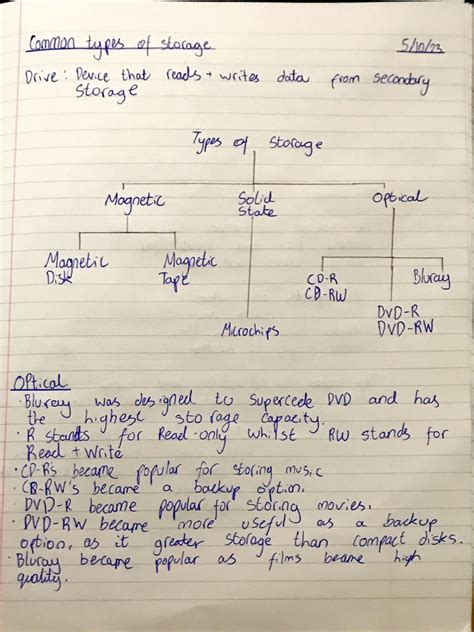 Common types of storage 5/10/23
Drive : Device that reads + writes data from secondary
storage
Types of Storage
Magnetic Solid Optical
State
Magnetic Magnetic CD-R Bluray
Disk Tape CD-RW
DVD-R
DVD-RW
Microchips
Optical
· Bluray was designed to supercede DVD and has
the highest storage capacity.
· R stands for Read-only whilst RW stands for
Read + Write
· CD-Rs became popular for storing music
· CD-RW's became a backup option.
· DVD-R became popular for storing movies.
· DVD-RW became more useful as a backup
option, as it greater storage than compact disks.
· Bluray became popular as films became high
quality.